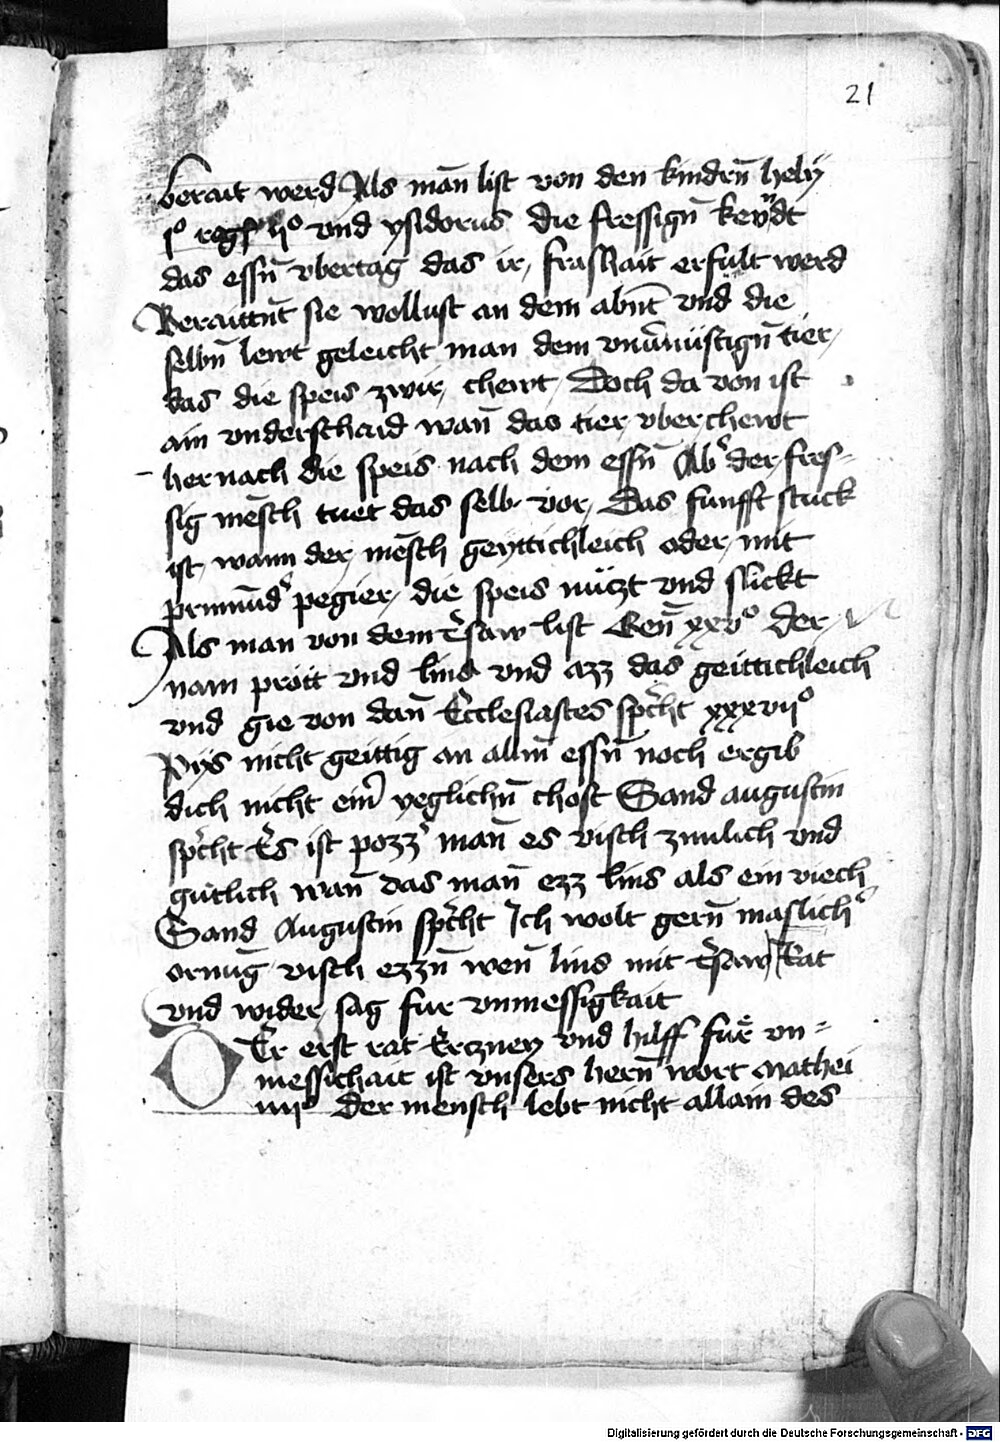 21
berait werd Als man̄ list von den kindrn̄ hely
j° regū ij° vnd ysidorus die fressign̄ keÿdt
das essn̄ vbertag das ir frashait erfult werd
Beraittnt̄ sie wollust an dem abnt̄ vnd die
selbn̄ lewt geleicht man dem vnu̇nüstign̄ tier
das die speis zwir chewt Doch da von ist
ain vnderschaid wan̄ das tier vberchewt
her nach die speis nach dem essn̄ Ab' der fres=
sig mēsch tuet das selb vor Das funfft stuck
ist wann der mēsch geyttichleich oder mit
prinnūd' pegier die speis nützt vnd slickt
Als man von dem esaw list Gen̄ xxv° der
nam prött vnd lins vnd azz das geittichleich
vnd gie von dan̄ Ecclesiastes sp'cht xxxvij°
Piys nicht geittig an allm̄ essn̄ noch ergib
dich nicht eim' yeglichn̄ chost Sand augustin
sp'cht Es ist pozz' man̄ es visch zimlich vnd
gütlich wan̄ das man̄ ezz lins als ein viech
Sand Augustin sp'cht Ich wolt gern̄ maslich'
ornūg visch ezzn̄ wen̄ lins mit esaw Rat
vnd wider sag fur vnmessigkait
DEr erst rat Erczney vnd hilff für vn=
messichait ist vnsers hern̄ wort Mathei
iiij° Der mensch lebt nicht allain des
Digitalisierung gefördert durch die Deutsche Forschungsgemeinschaft - DFG